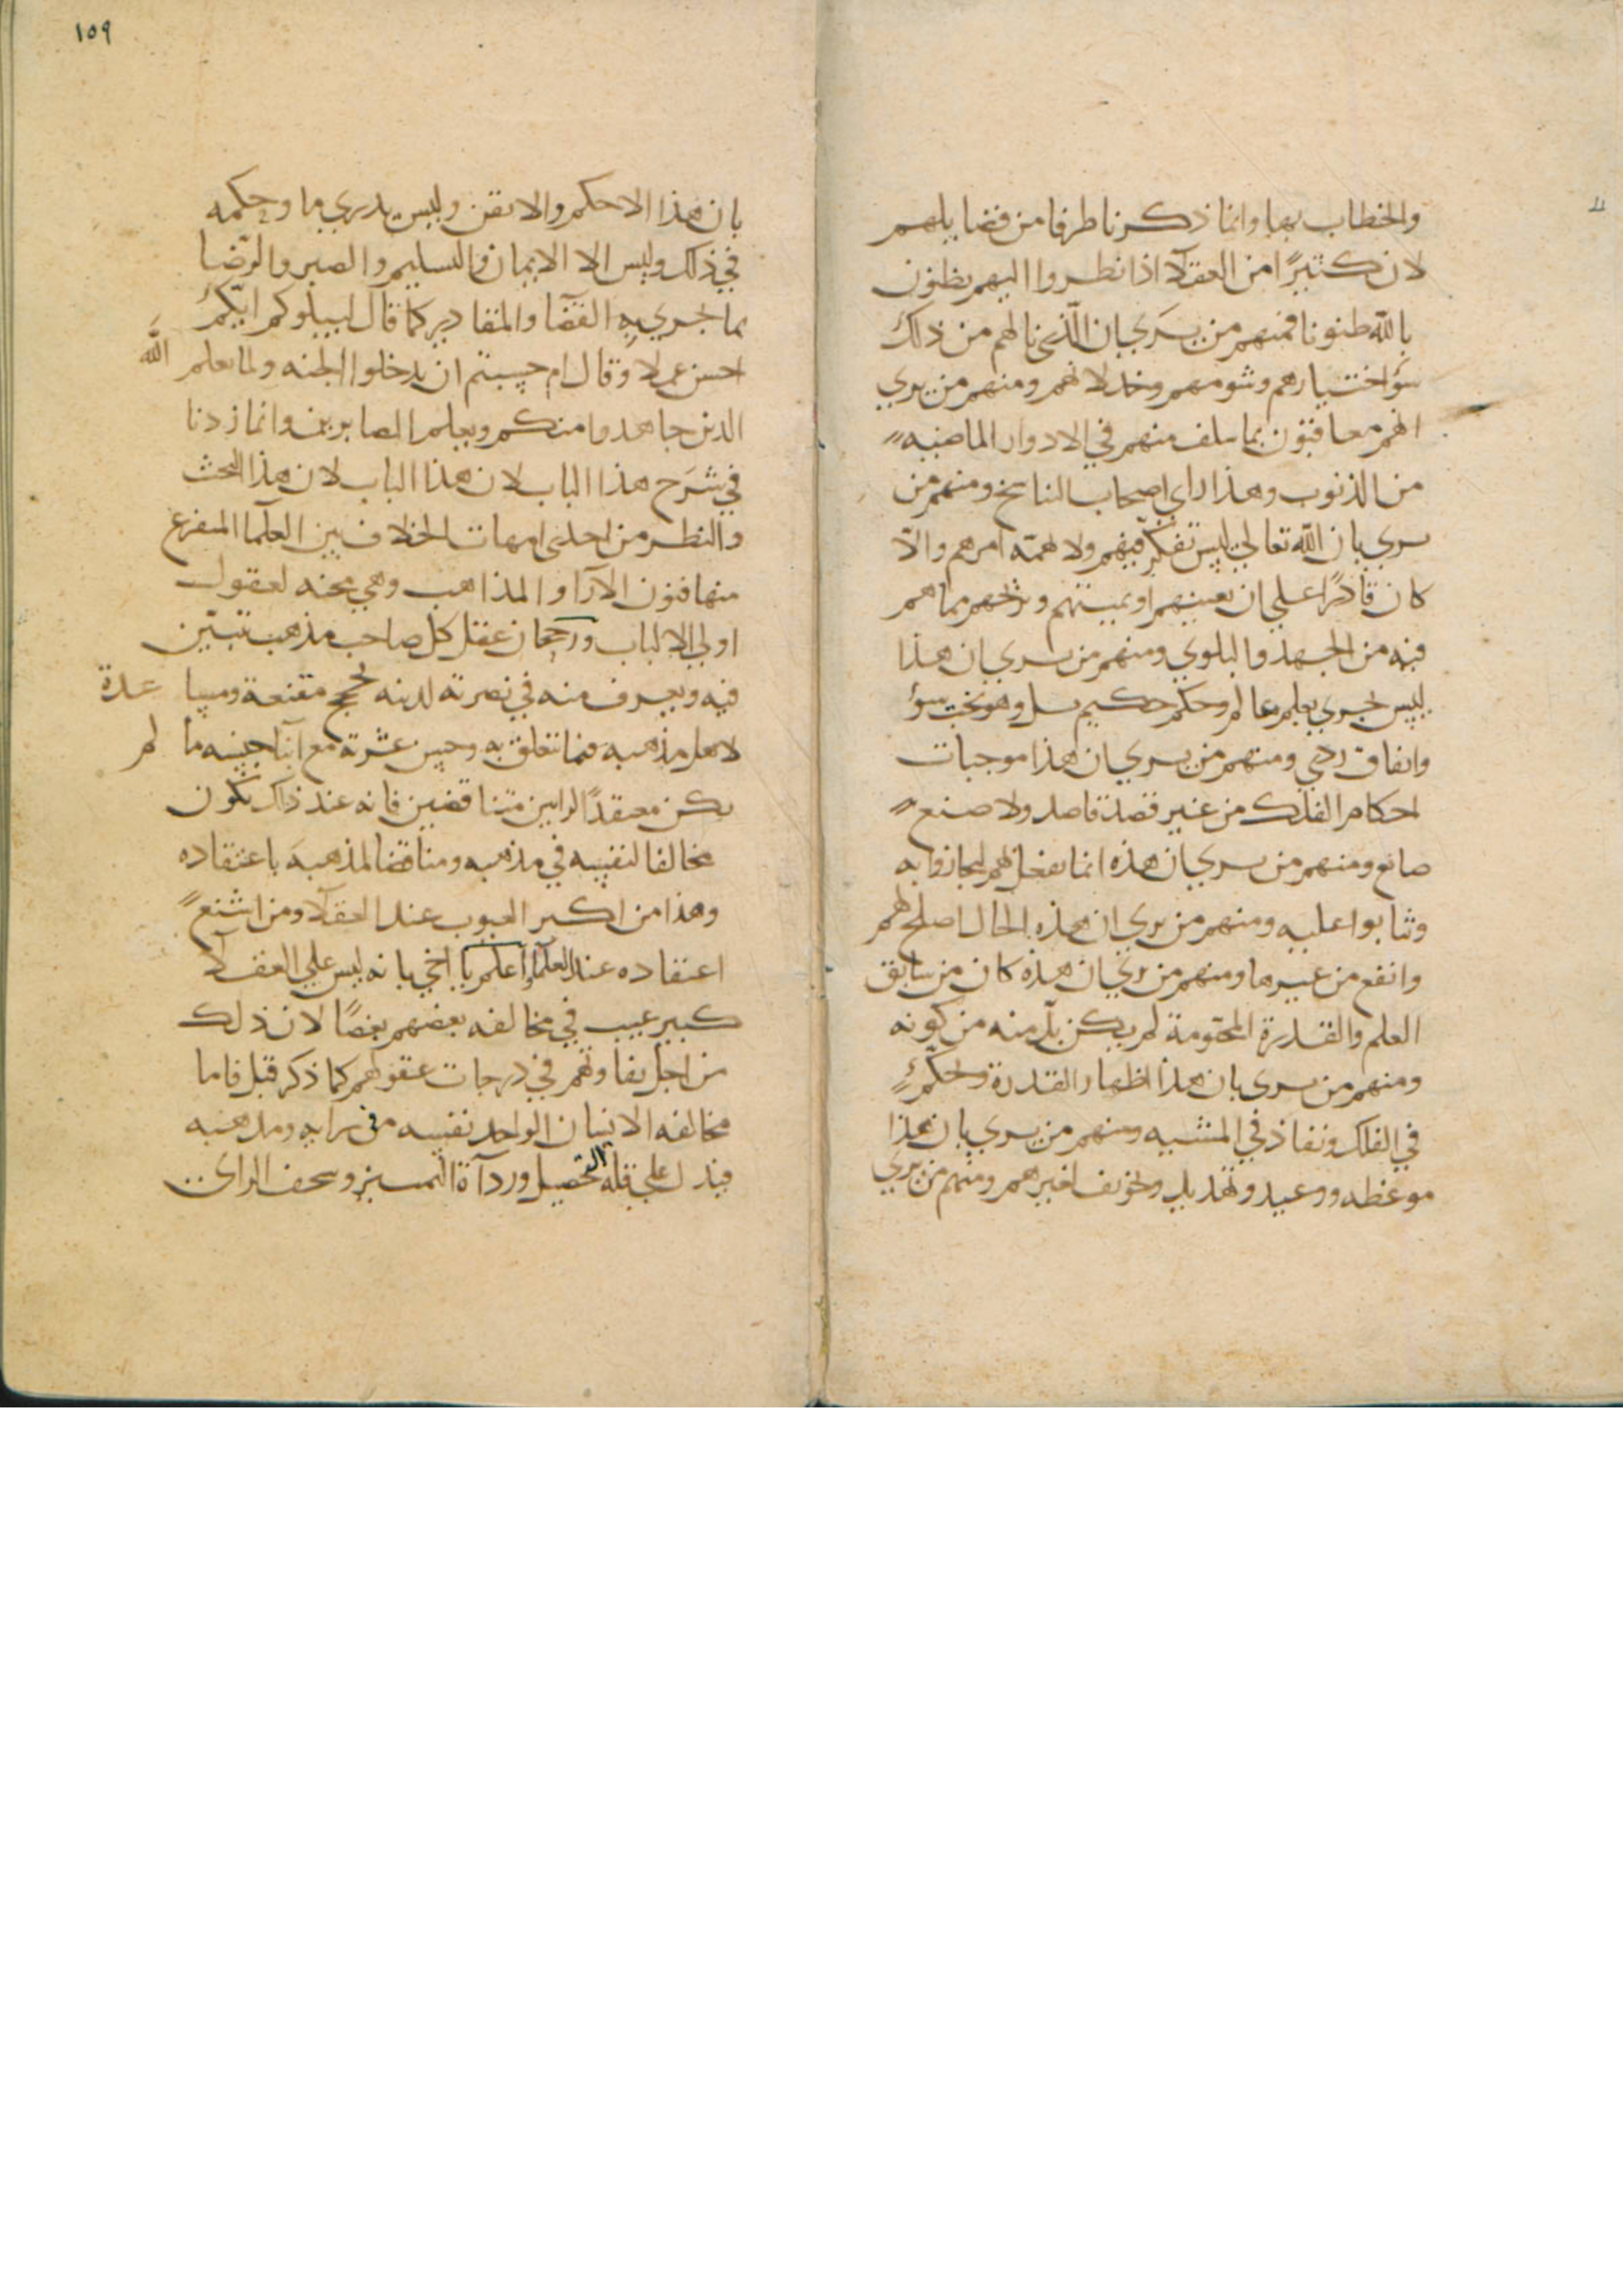 والخطاب بها وانما ذكرنا طرفا من فضايلهم
لان كثيرًا من العقلآ اذا نظروا اليهم يظنون
بالله ظنونا فمنهم من يرى بان الذى نالهم من ذلك
سؤ اختيارهم وشومهم وخذلانهم ومنهم من يري
انهم معاقبون بما سلف منهم في الادوار الماضيه
من الذنوب وهذا راي اصحاب التناسخ ومنهم من
يري بان الله تعالي ليس تفكر فيهم ولا همّه امرهم والّا
كان قادرًا علي ان يعينهم او يميتهم ويريحهم مما هم
فيه من الجهد والبلوي ومنهم من يري ان هذا
ليس يجري بعلم عالم وحكم حكيم بل وهو بخت سؤ
واتفاق ردي ومنهم من يري ان هذا موجبات
احكام الفلك من غير قصد قاصد ولا صنع
صانع ومنهم من يري ان هذه انما يفعل لهم ليجازوا به
وثابوا عليه ومنهم من يري ان هذه الحال اصلح لهم
وانفع من غيرها ومنهم من يري ان هذه كان من سابق
العلم والقدرة المحتومة لم يكن بدّ منه من كونه
ومنهم من يرى بان هذا اظهار القدرة وحكم
في الفلك ونفاذ في المشيه ومنهم من يري بان هذا
موعظه ووعيد وتهديد وتخويف لغيرهم ومنهم من يري
١٥٩
بان هذا الاحكم والاتقن وليس يدري ما وحكمه
في ذلك وليس الا الايمان والتسليم والصبر والرّضا
بما يجري به القضآ والمقادير كما قال ليبلوكم ايّكم
احسن عملا وقال ام حسبتم ان يدخلوا الجنه ولما يعلم الله
الذين جاهدوا منكم ويعلم الصابرين وانما زدنا
في شرح هذا الباب لان هذا الباب لان هذا البحث
والنظر من احدى امهات الخلاف بين العلمآ المتفرع
منها فنون الآرا والمذاهب وهي محنه لعقول
اولي الالباب ورجحان عقل كل صاحب مذهب تتبيّن
فيه ويعرف منه في نصرته لدينه بحجج مقنعة ومسا عدة
لاهل مذهبه فيما تتعلق به وحسن عشرة مع ابنا جنسه ما لم
يكن معتقدًا لرايين متناقضين فانه عند ذلك يكون
مخالفا لنفسه في مذهبه ومناقضا لمذهبه باعتقاده
وهذا من اكبر العيوب عند العقلآ ومن اشنع
اعتقاده عند العلمآ واعلم يا اخي بانه ليس علي العقلآ
كبير عيب في مخالفه بعضهم بعضًا لان ذلك
من اجل تفاوتهم في درجات عقولهم كما ذكر قبل فاما
مخالفه الانسان الواحد نفسه في رايه ومذهبه
فيدل علي قلة التحصيل وردآة التمييز وسخف الراى